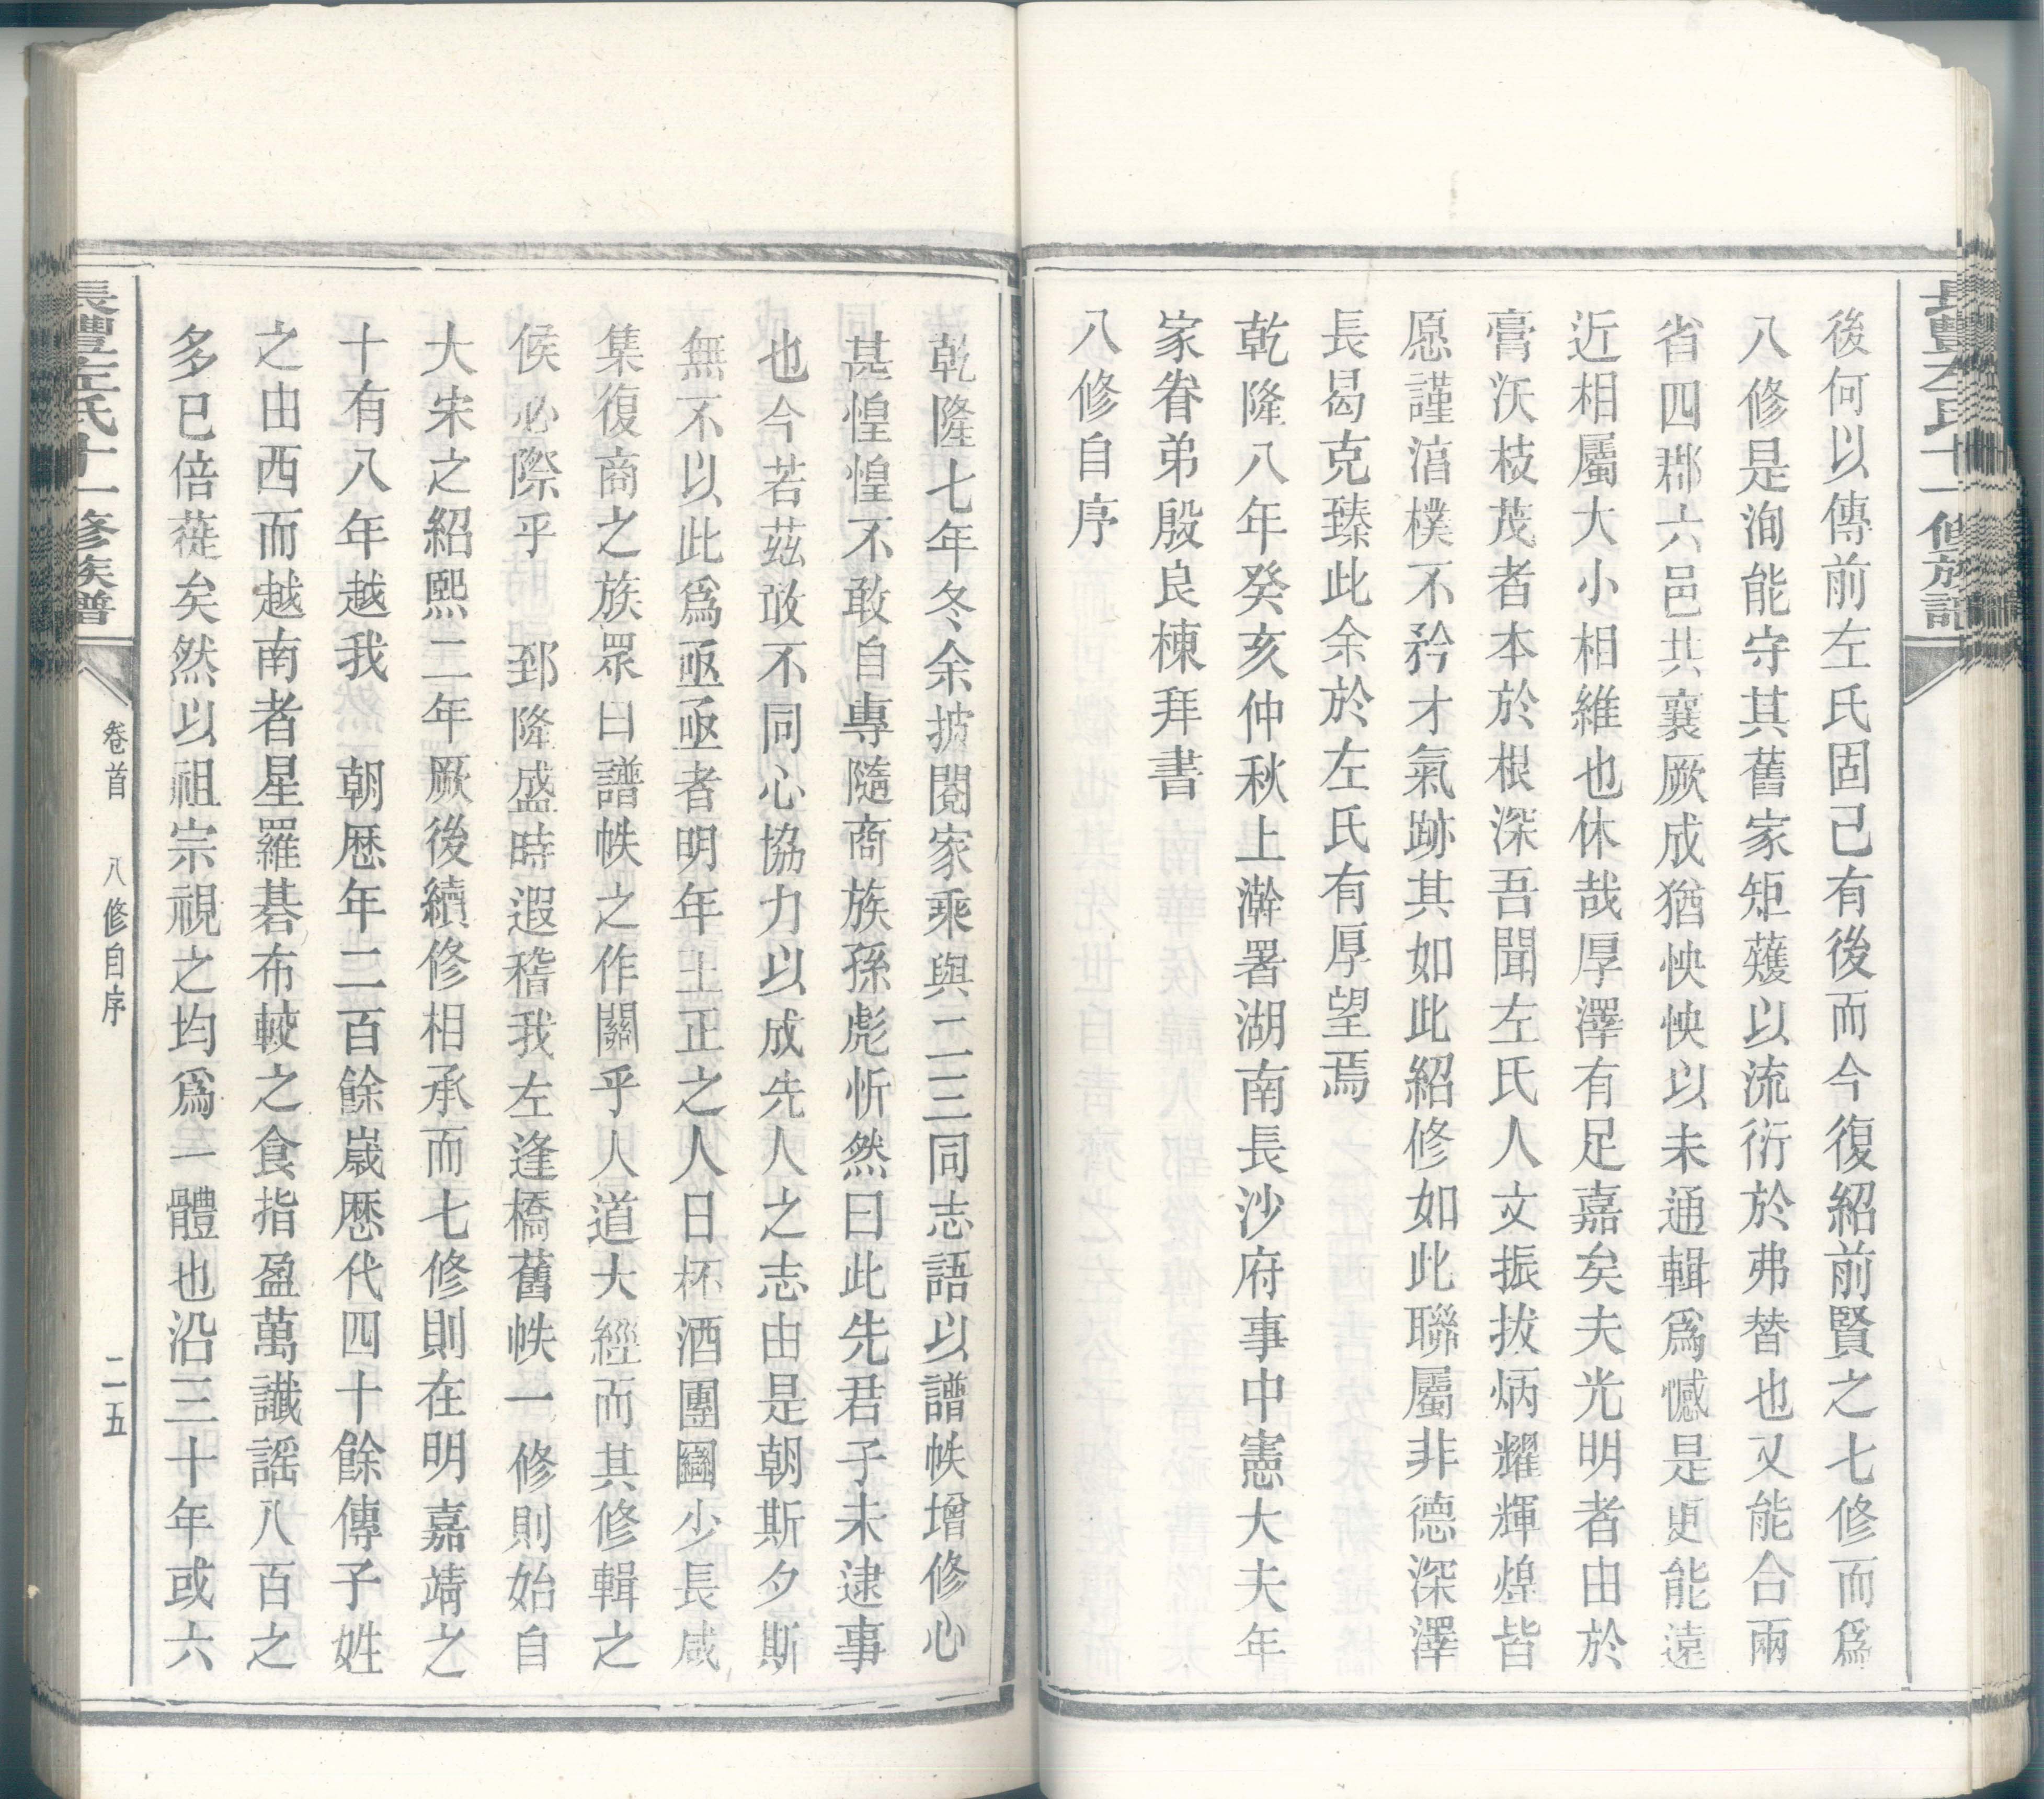 長豐左氏十一修族譜
後何以傳前左氏固己有後而今復紹前賢之七修而爲
八修是洵能守其舊家矩矱以流衍於弗替也又能合兩
省四郡六邑共襄厥成猶怏怏以未通輯爲憾是更能遠
近相屬大小相維也休哉厚澤有足嘉矣夫光明者由於
膏沃枝茂者本於根深吾聞左氏人文振拔炳耀輝煌皆
愿謹渃樸不矜才氣跡其如此紹修如此聯屬非德深澤
長曷克臻此余於左氏有厚望焉
乾隆八年癸亥仲秋上澣署湖南長沙府事中憲大夫年
家眷弟殷良棟拜書
八修自序
乾隆七年冬余披閱家乘與二三同志語以譜帙增修心
甚惶惶不敢自專隨商族孫彪忻然曰此先君子未逮事
也今若茲敢不同心協力以成先人之志由是朝斯夕斯
無不以此爲亟亟者明年王正之人日杯酒團圞少長咸
集復商之族眾曰譜帙之作關乎人道大經而其修輯之
候必際乎 郅隆盛時遐稽我左逢橋舊帙一修則始自
大宋之紹熙二年厥後續修相承而七修則在明嘉靖之
十有八年越我 朝歷年二百餘嵗歷代四十餘傳子姓
之由西而越南者星羅碁布較之食指盈萬讖謠八百之
多已倍蓰矣然以祖宗視之均爲一體也沿三十年或六
長豐左氏十一修族譜
卷首 八修自序 二五